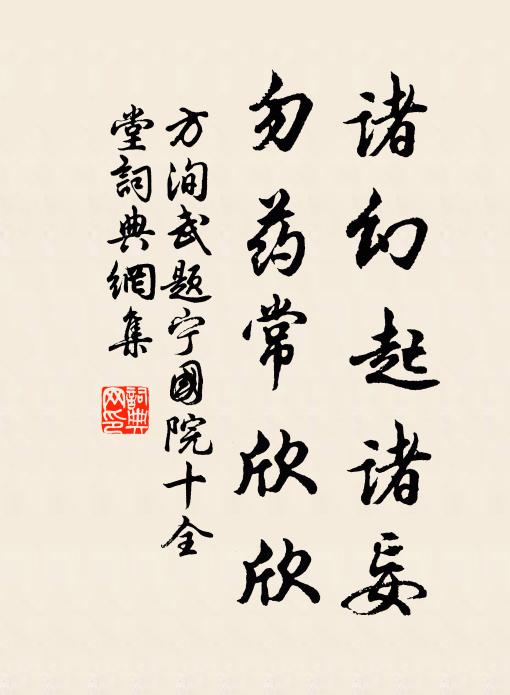 诸幻起诸妄
勿药常欣欣
方洵武题宁國院十全
堂詞典網集
詞典网印